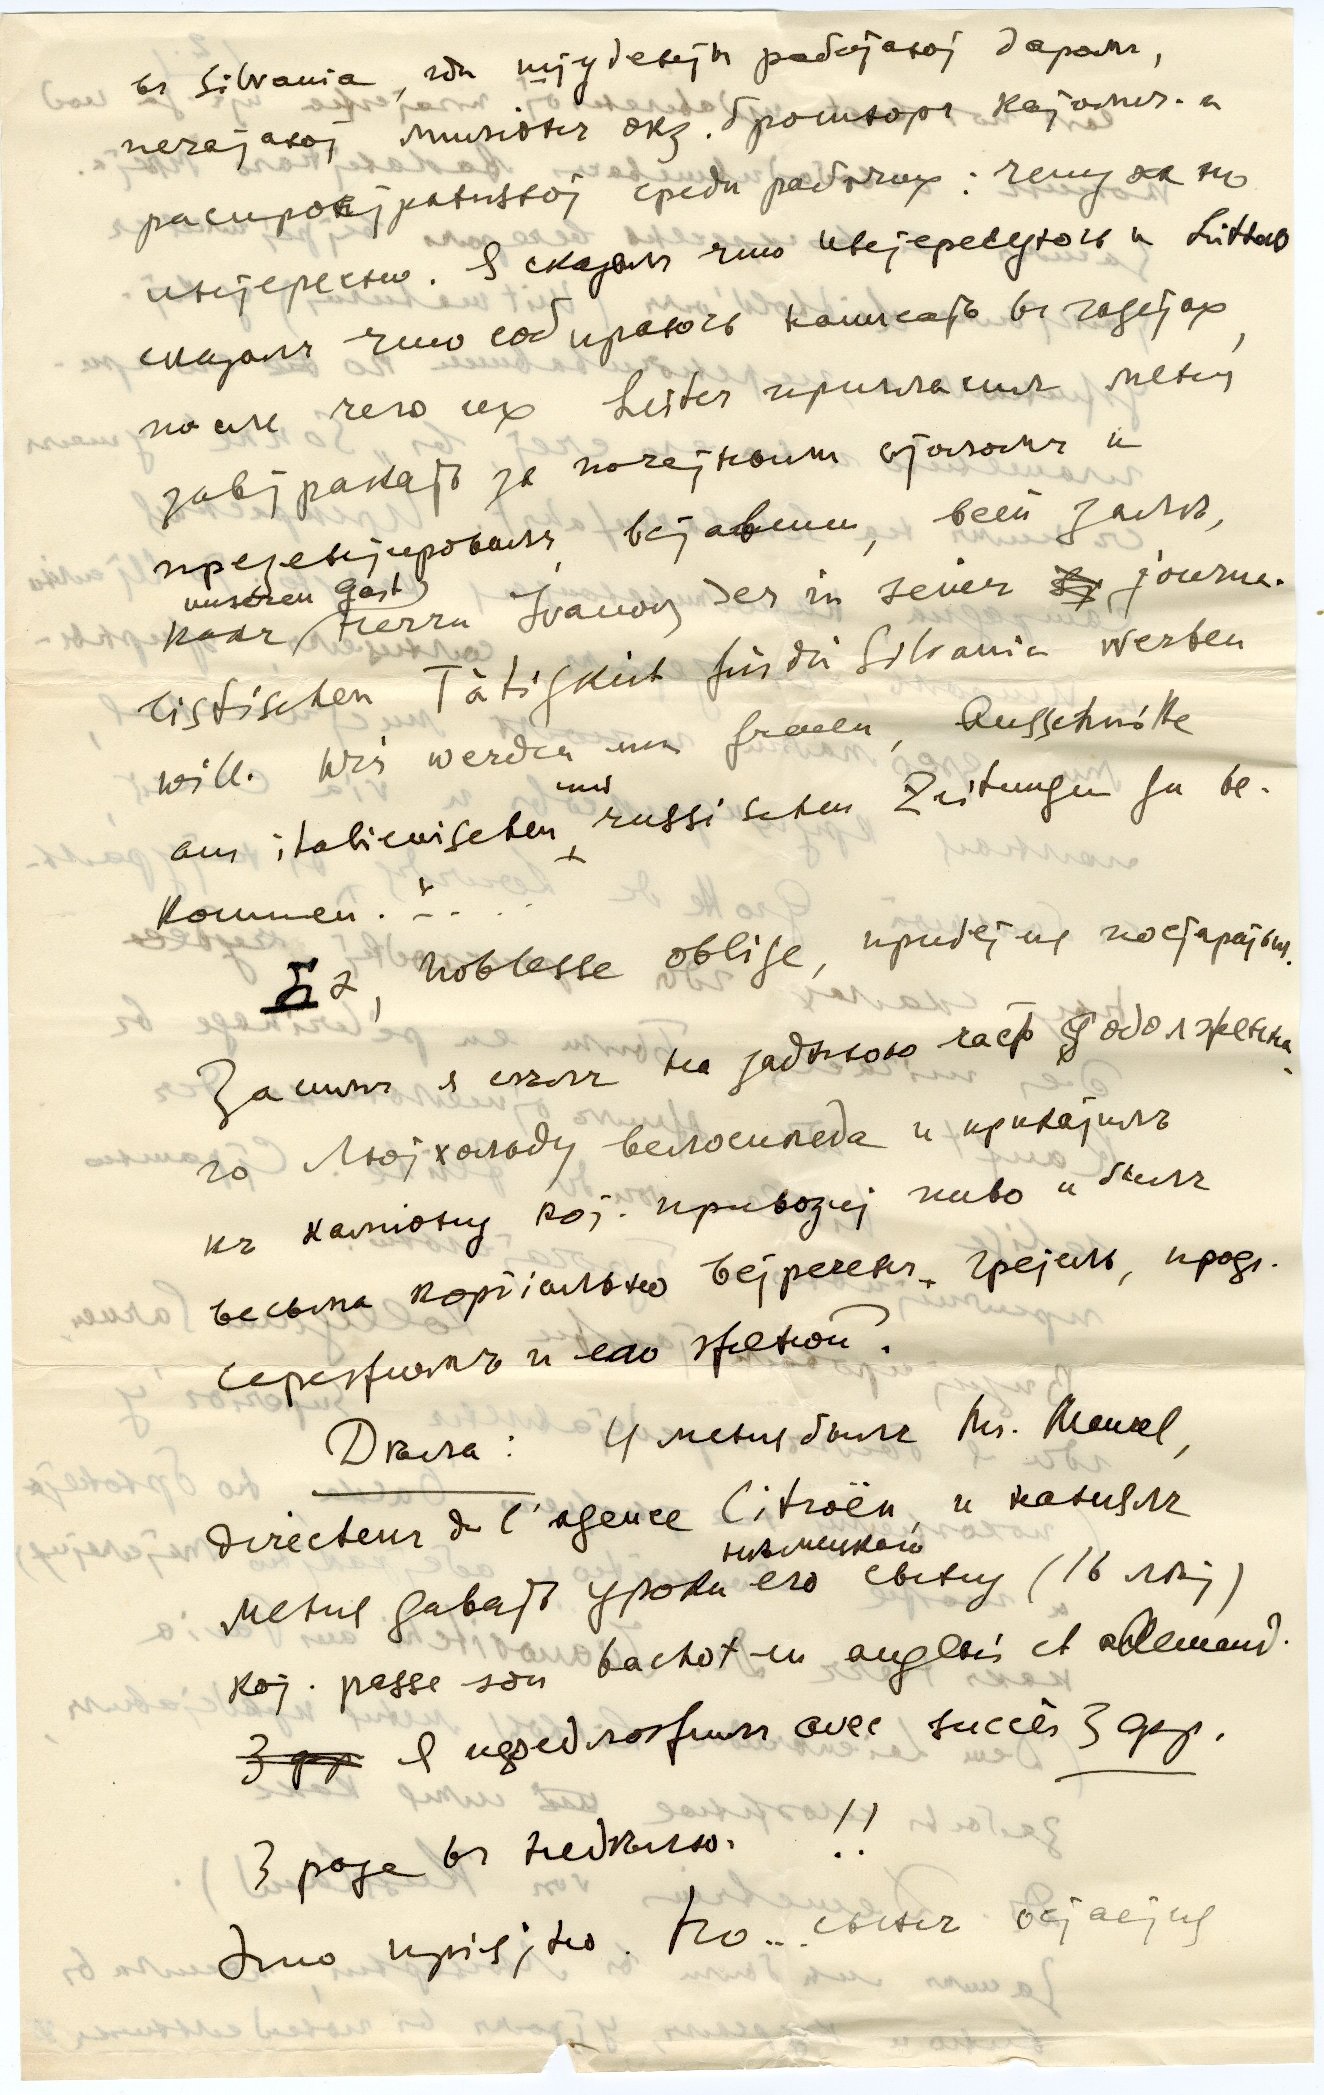 въ Silvania, гдѣ студенты работают даромъ,
печатают милліонъ экз. брошюръ католич. и
распространяют среди рабочих: чему я но
интересно. Я сказалъ что интересуюсь и
сказалъ что собираюсь написать въ газетах,
послѣ чего их Leiter пригласилъ меня
завтракать за почетным столомъ и
презентировалъ, вставши, всей залѣ,
какъ unseren Gast, Herrn Ivanov, der in seiner journa-
listischen Tätigkeit für die Silvania werben
will. Wir werden uns freuen, Ausschnitte
aus italienischen und russischen Zeitungen zu be-
kommen.
noblesse oblige, придется постараться.
Затѣмъ я сѣлъ на заднюю часть
го мотхольду велосипеда и прикатилъ
къ камiону кот. привозит пиво и былъ
весьма кордiально встрѣченъ
Сережкомъ и его женой.
Дѣла: У меня былъ Mr.
directeur de l'agence Citroën, и нанялъ
меня давать уроки нѣмецкаго его сыну (16 лѣт)
кот. passe son bachot en anglais et allemand.
3 фр Я предложилъ avec succès 3 фр.
3 раза въ недѣлю. !!
Это прiятно. Но... сынъ остается